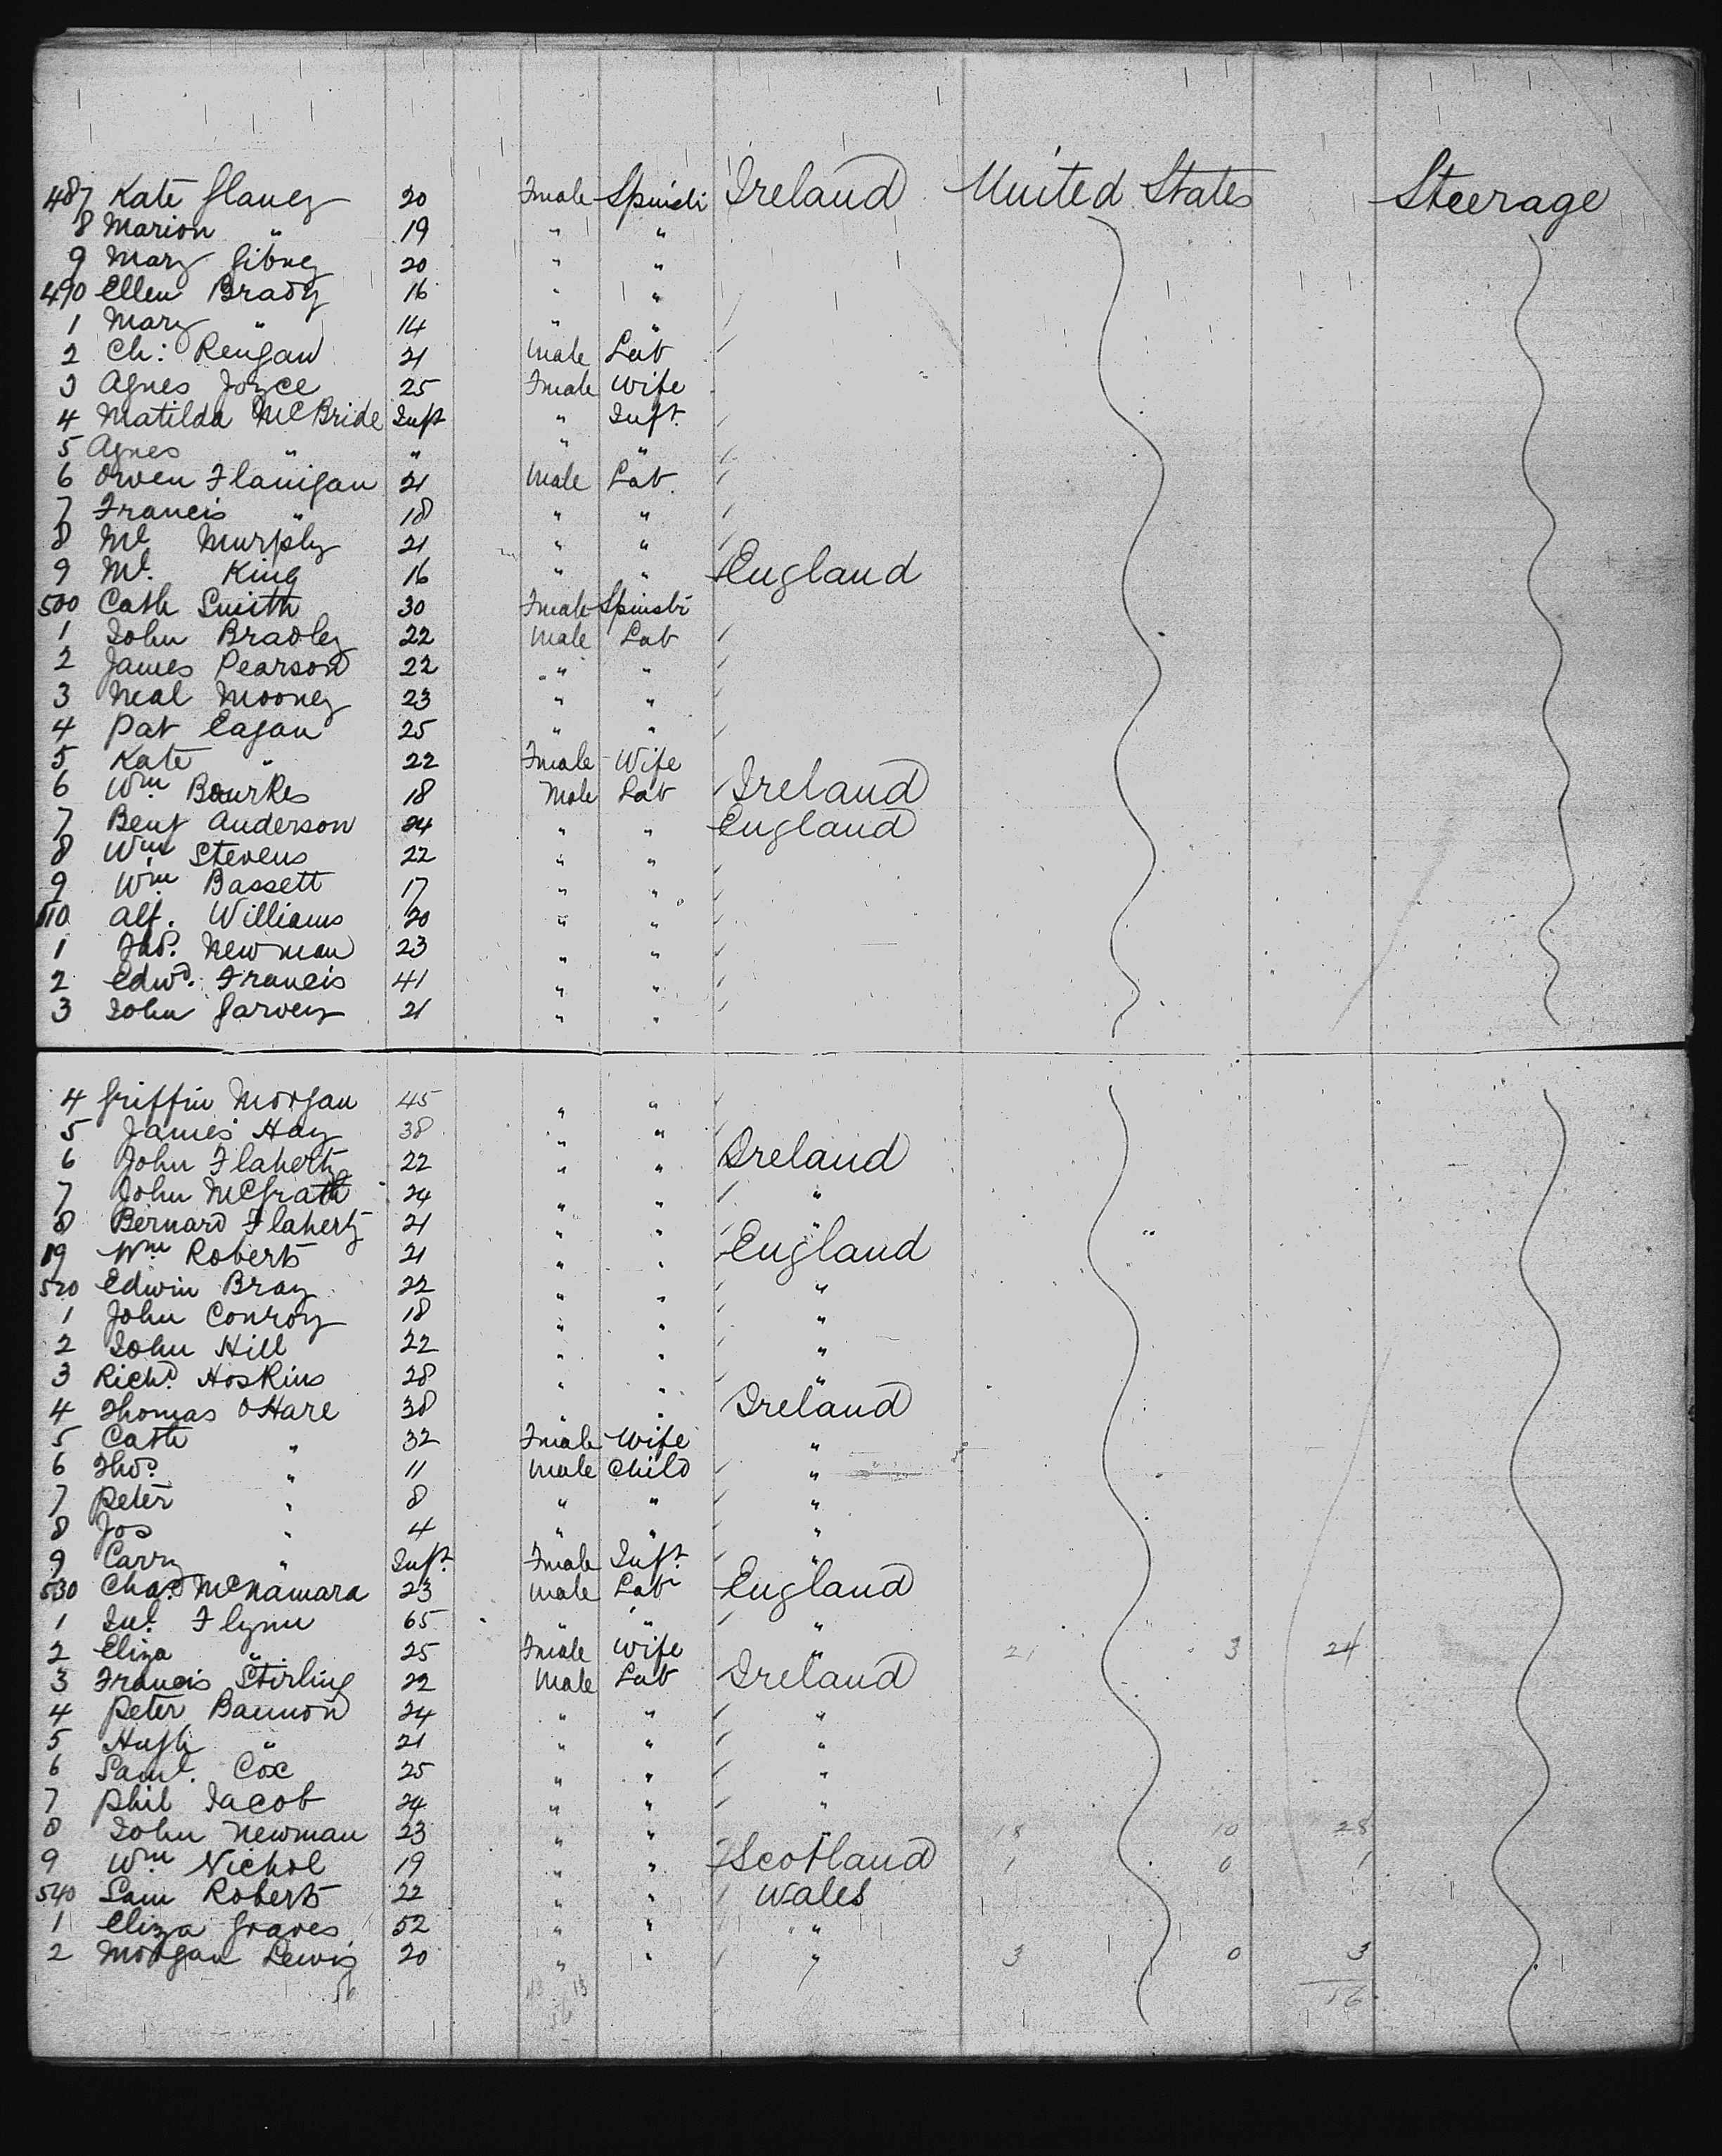 487 Kate Glaney 20 Fmale Spinstr Ireland United States Steerage
8 Marion " 19 " "
9 Mary Gibney 20 " "
490 Ellen Brady 16 " "
1 Mary " 14 " "
2 Ch: Rengan 21 Male Lab
3 Agnes Joyce 25 Fmale Wife
4 Matilda McBride Inft " Inft.
5 Agnes " " " "
6 Owen Flanigan 21 Male Lab.
7 Francis " 18 " "
8 Ml Murphy 21 " "
9 Ml. King 16 " " England
500 Cath Smith 30 Fmale Spinstr
1 John Bradley 22 Male Lab
2 James Pearson 22 " "
3 Neal Mooney 23 " "
4 Pat Eagan 25 " "
5 Kate " 22 Fmale Wife
6 Wm Bourkes 18 Male Lab Ireland
7 Benj Anderson 24 " " England
8 Wm Stevens 22 " "
9 Wm Bassett 17 " "
510 Alf. Williams 20 " "
1 Thos. Newman 23 " "
2 Edwd. Francis 41 " "
3 John Garvey 21 " "
4 Griffin Morgan 45 " "
5 James Hay 38 " "
6 John Flaherty 22 " " Ireland
7 John McGrath 24 " " "
8 Bernard Flaherty 21 " " " "
19 Wm Roberts 21 " " England
520 Edwin Bray 22 " " "
1 John Conroy 18 " " "
2 John Hill 22 " " "
3 Richd. Hoskins 28 " " "
4 Thomas OHare 38 " " Ireland
5 Cath " 32 Fmale Wife "
6 Thos. " 11 Male Child "
7 Peter " 8 " " "
8 Jos " 4 " " "
9 Carry " Inft. Fmale Inft. "
530 Chas. McNamara 23 Male Lab England
1 Jno. Flynn 65 " " "
2 Eliza " 25 Fmale Wife " 21 3 24
3 Francis Stirling 22 Male Lab Ireland
4 Peter Bannon 24 " " "
5 Hugh " 21 " " "
6 Saml. Cox 25 " " "
7 Phil Jacob 24 " " "
8 John Newman 23 " " " 18 10 28
9 Wm Nichol 19 " " Scotland 1 0 1
540 Sam Roberts 22 " " Wales
1 Eliza Graves 52 " " "
2 Morgan Lewis 20 " " " 3 0 3
56 43 13 56
56